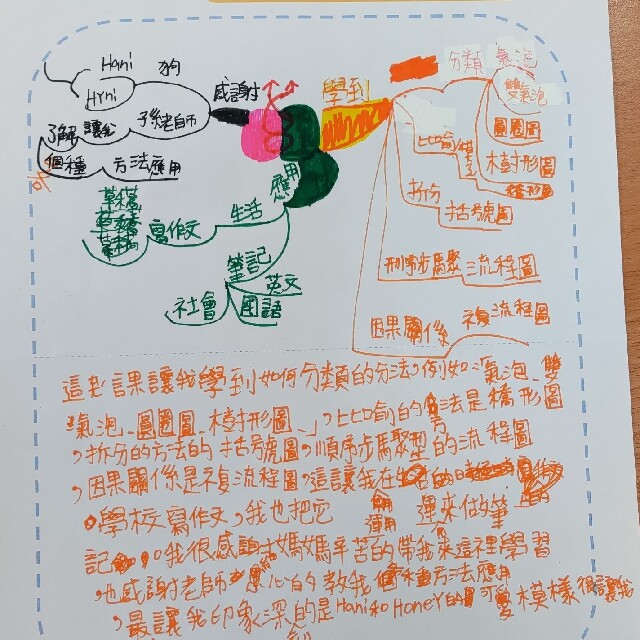 Hani 狗
Hyni
孫老師
了解讓我
個種 方法應用
感謝
學到
分類 氣泡
雙氣泡
圓圈圖
樹形圖
橋形圖
比喻
拆分
括號圖
順序步驟 流程圖
因果關係 複流程圖
應用
生活
寫作文
草稿
筆記
英文
國語
社會
這堂課讓我學到如何分類的方法,例如:氣泡、雙
氣泡、圓圈圖、樹形圖、,比喻的方法是橋形圖
,拆分的方法的括號圖,順序步驟型的流程圖
,因果關係是複流程圖,這讓我在生活的
。學校寫作文,我也把它 運來做筆
記。我很感謝媽媽辛苦的帶我來這裡學習
,也感謝老師 心的教我個種方法應用
,最讓我印象深的是Hani和Honey的 可愛模樣很讓我